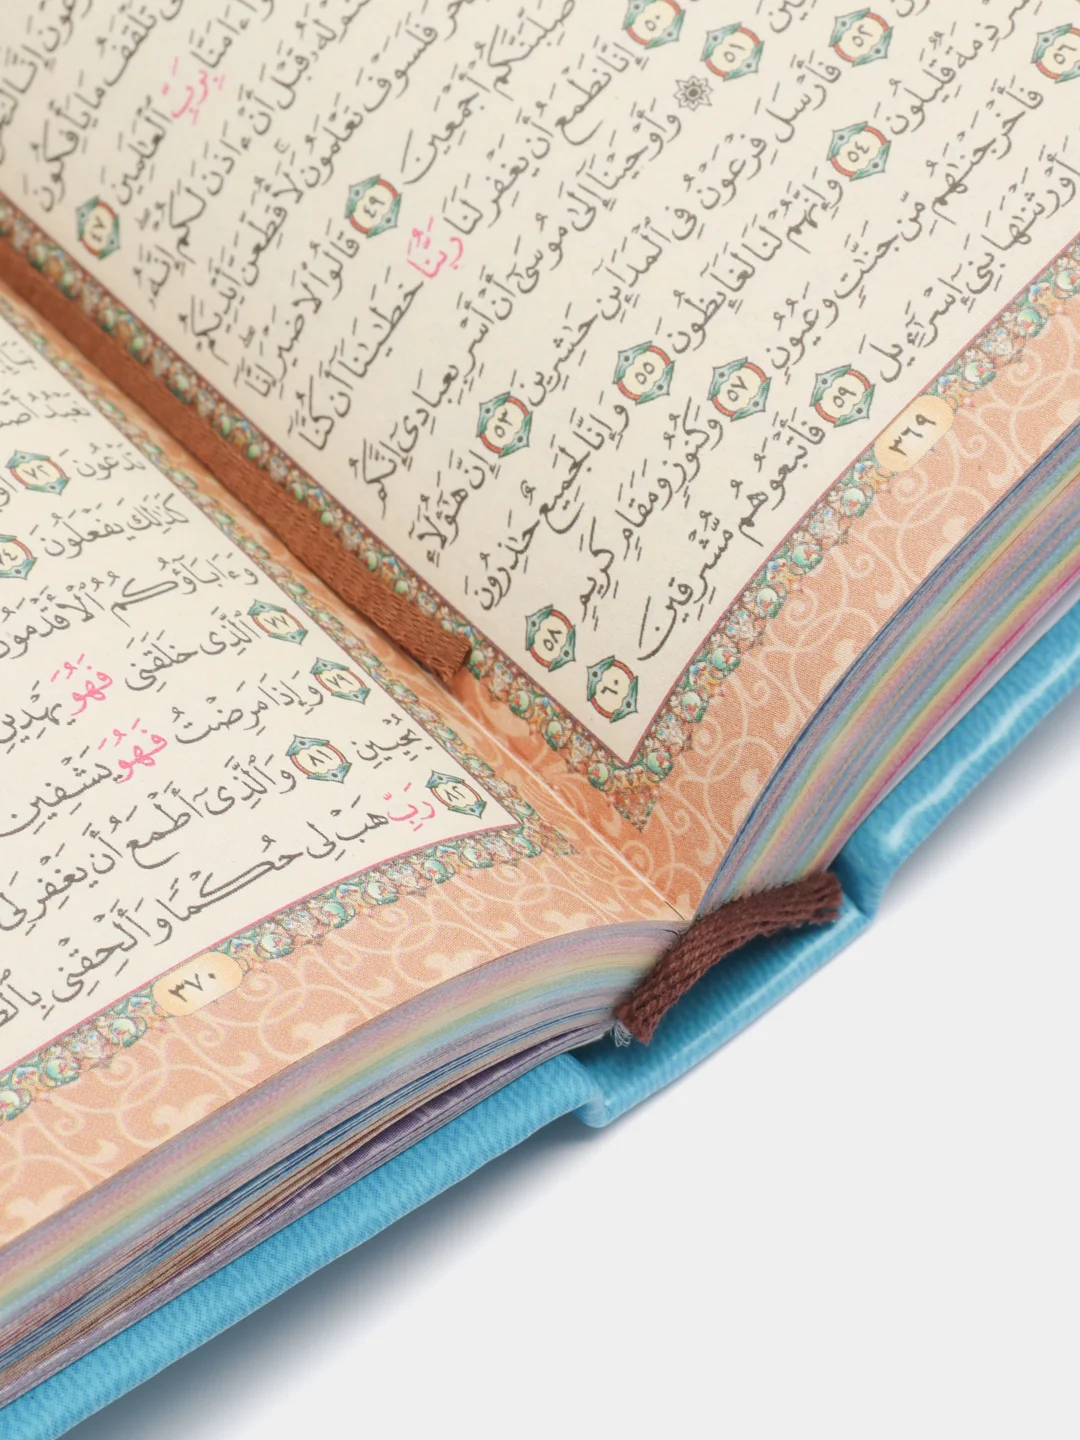 تَلْقَفُ مَا يَأْفِكُونَ
ءَامَنَّا بِرَبِّ ٱلْعَٰلَمِينَ ٤٧
لَهُۥ قَبْلَ أَنْ ءَاذَنَ لَكُمْ إِنَّهُۥ
فَلَسَوْفَ تَعْلَمُونَ لَأُقَطِّعَنَّ أَيْدِيَكُمْ
أَجْمَعِينَ ٤٩ قَالُوا۟ لَا ضَيْرَ إِنَّآ
٥٠ إِنَّا نَطْمَعُ أَن يَغْفِرَ لَنَا رَبُّنَا خَطَٰيَٰنَآ أَن كُنَّآ
٥١ ۞ وَأَوْحَيْنَآ إِلَىٰ مُوسَىٰٓ أَنْ أَسْرِ بِعِبَادِىٓ إِنَّكُم
٥٢ فَأَرْسَلَ فِرْعَوْنُ فِى ٱلْمَدَآئِنِ حَٰشِرِينَ ٥٣ إِنَّ هَٰٓؤُلَآءِ
قَلِيلُونَ ٥٤ وَإِنَّهُمْ لَنَا لَغَآئِظُونَ ٥٥ وَإِنَّا لَجَمِيعٌ حَٰذِرُونَ
٥٦ فَأَخْرَجْنَٰهُم مِّن جَنَّٰتٍ وَعُيُونٍ ٥٧ وَكُنُوزٍ وَمَقَامٍ كَرِيمٍ ٥٨
وَأَوْرَثْنَٰهَا بَنِىٓ إِسْرَٰٓءِيلَ ٥٩ فَأَتْبَعُوهُم مُّشْرِقِينَ ٦٠
٣٦٩
نَعْبُدُ
تَدْعُونَ ٧٢ أَوْ
كَذَٰلِكَ يَفْعَلُونَ ٧٤
وَءَابَآؤُكُمُ ٱلْأَقْدَمُونَ
٧٧ ٱلَّذِى خَلَقَنِى فَهُوَ يَهْدِينِ
٧٩ وَإِذَا مَرِضْتُ فَهُوَ يَشْفِينِ
يُحْيِينِ ٨١ وَٱلَّذِىٓ أَطْمَعُ أَن يَغْفِرَ لِى
٨٢ رَبِّ هَبْ لِى حُكْمًا وَأَلْحِقْنِى
٣٧٠